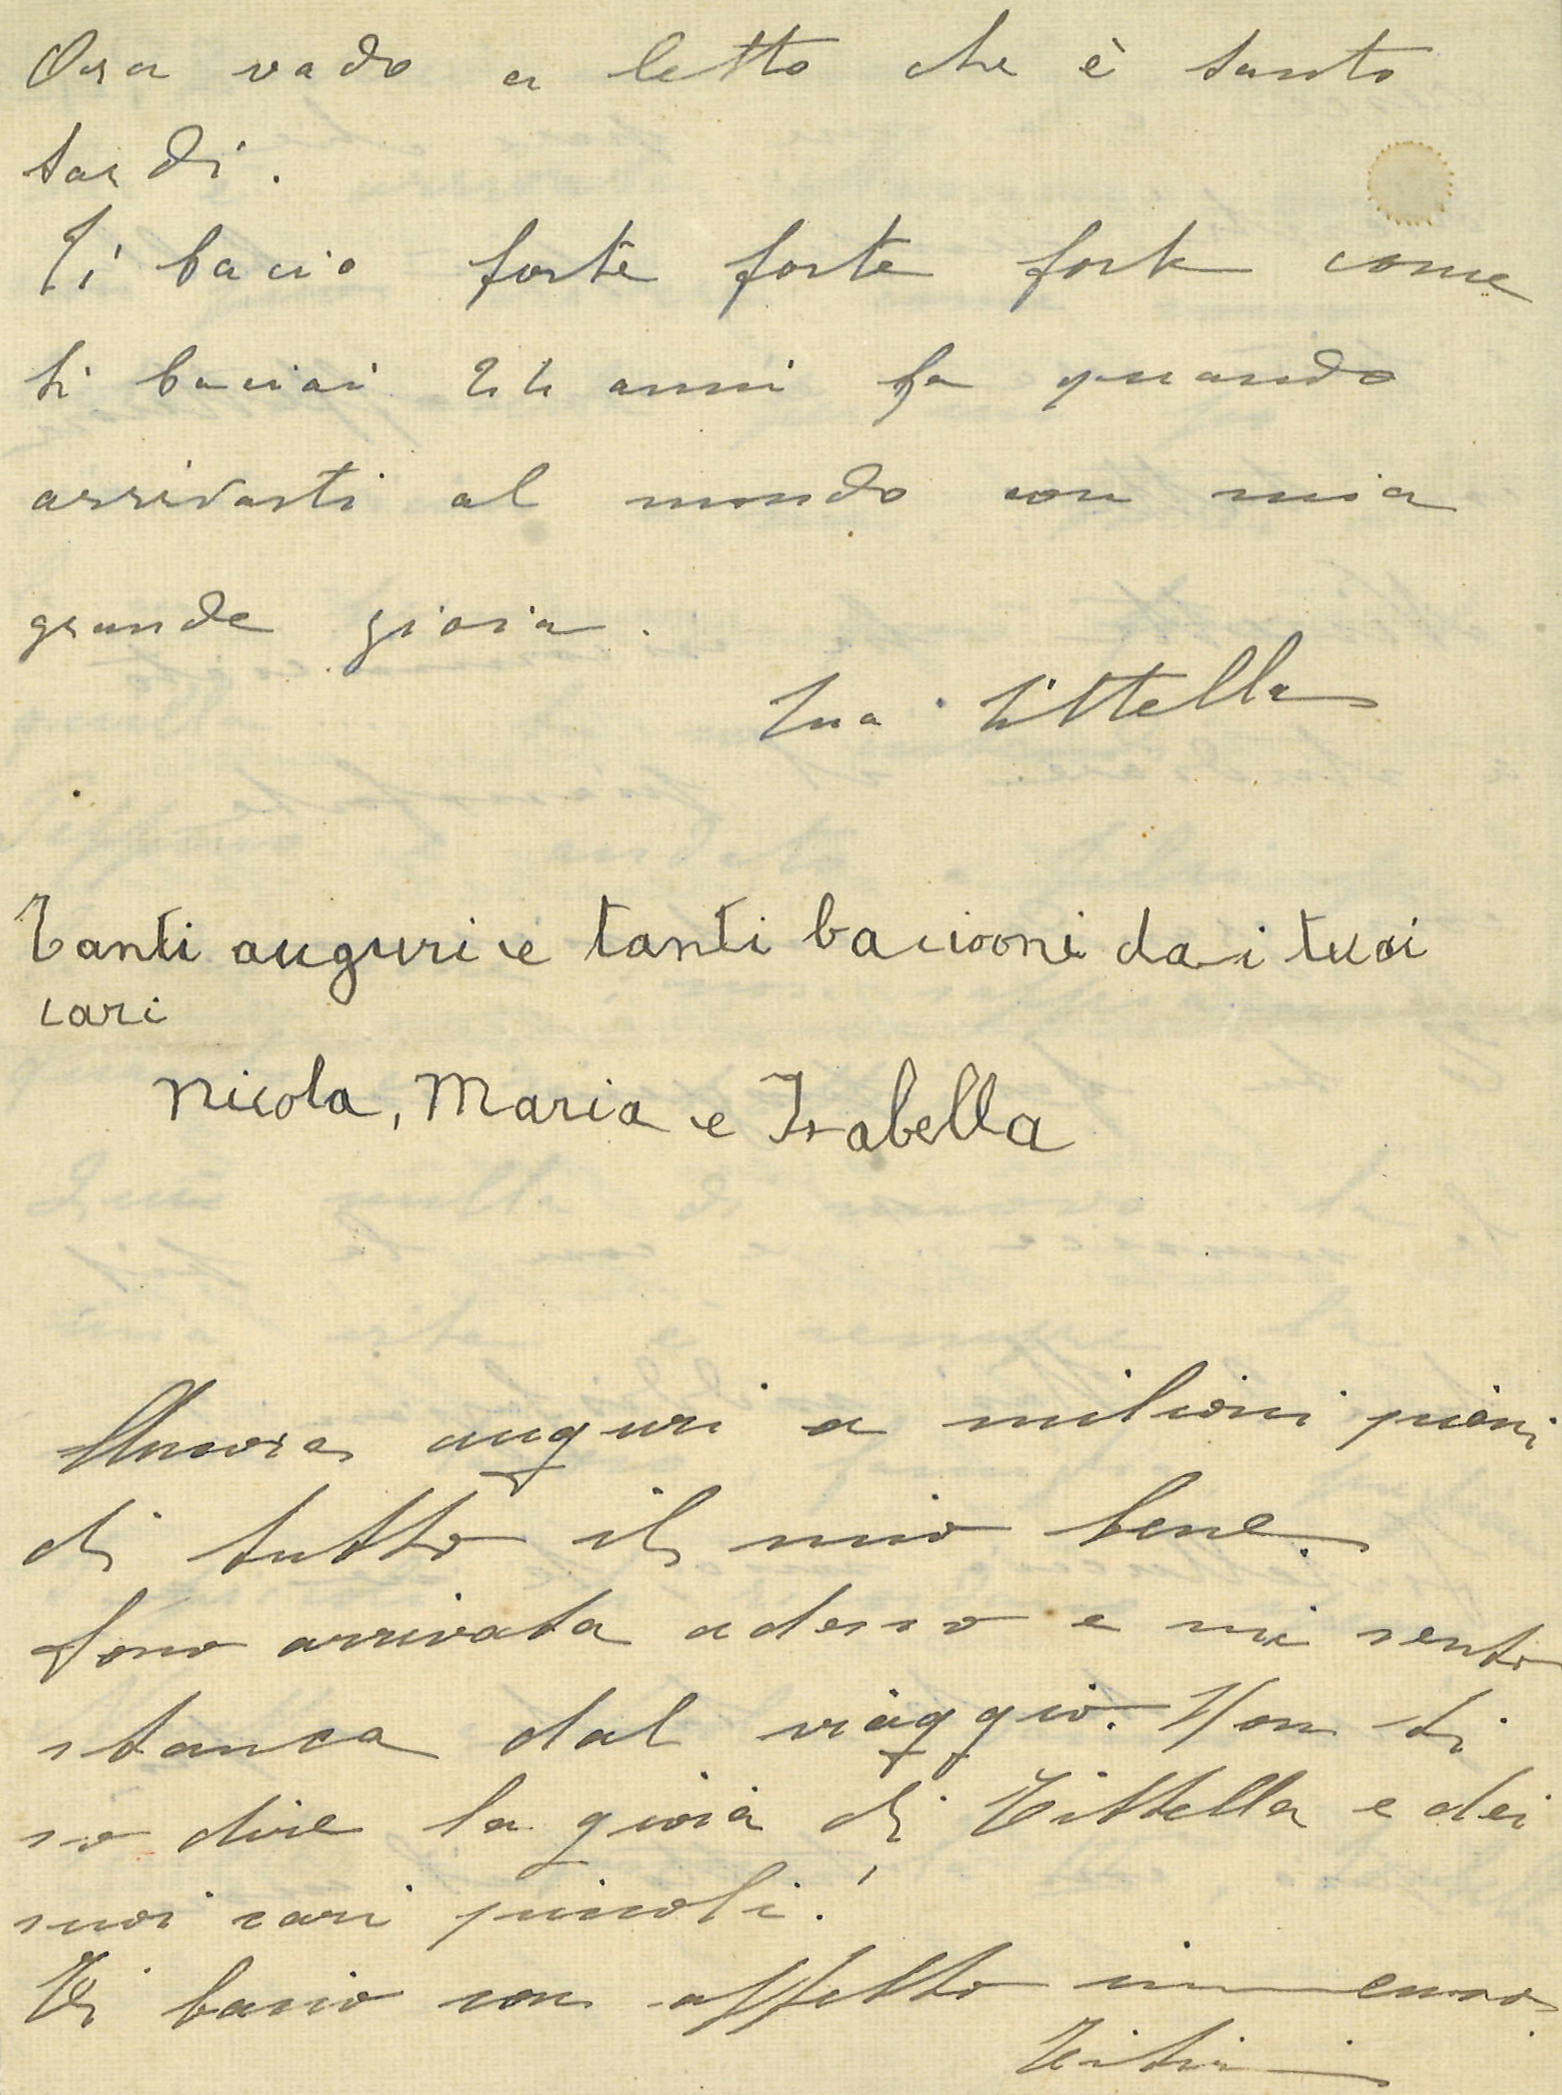 Ora vado a letto che è tanto
tardi.
Ti bacio forte forte forte come
ti baciai 24 anni fa quando
arrivasti al mondo con mia
grande gioia.
tua Tittella
Tanti auguri e tanti bacioni dai tuoi
cari
Nicola, Maria e Isabella
Ancora auguri a milioni pieni
di tutto il mio bene.
Sono arrivata adesso e mi sento
stanca dal viaggio. Non ti
so dire la gioia di Tittella e dei
suoi cari piccoli!
Ti bacio con affetto immenso
Titti